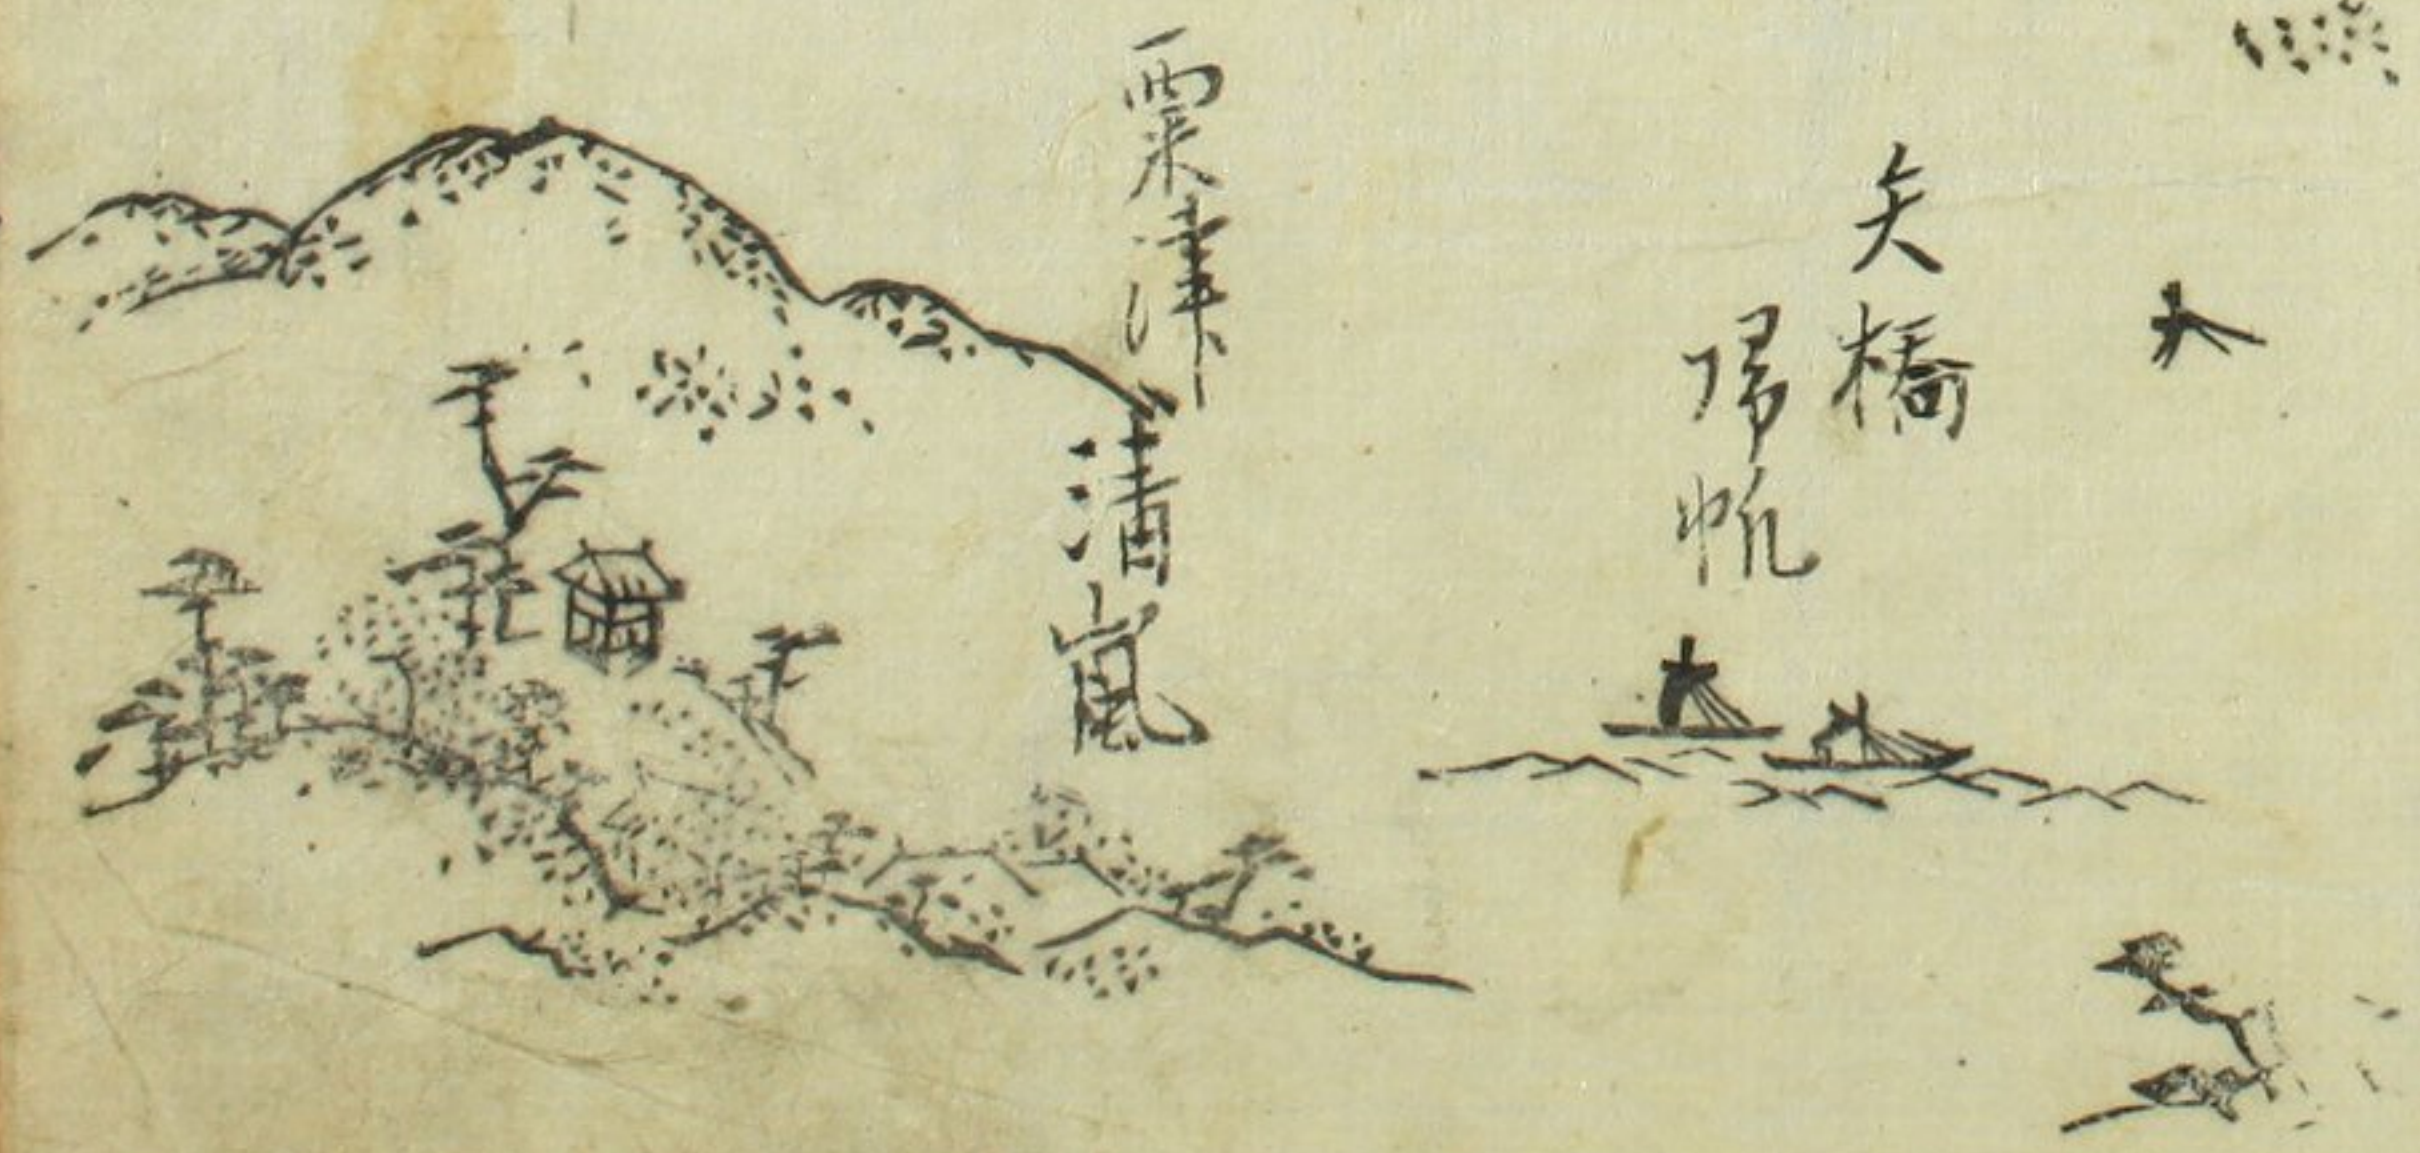 矢橋
帰帆
粟津清嵐